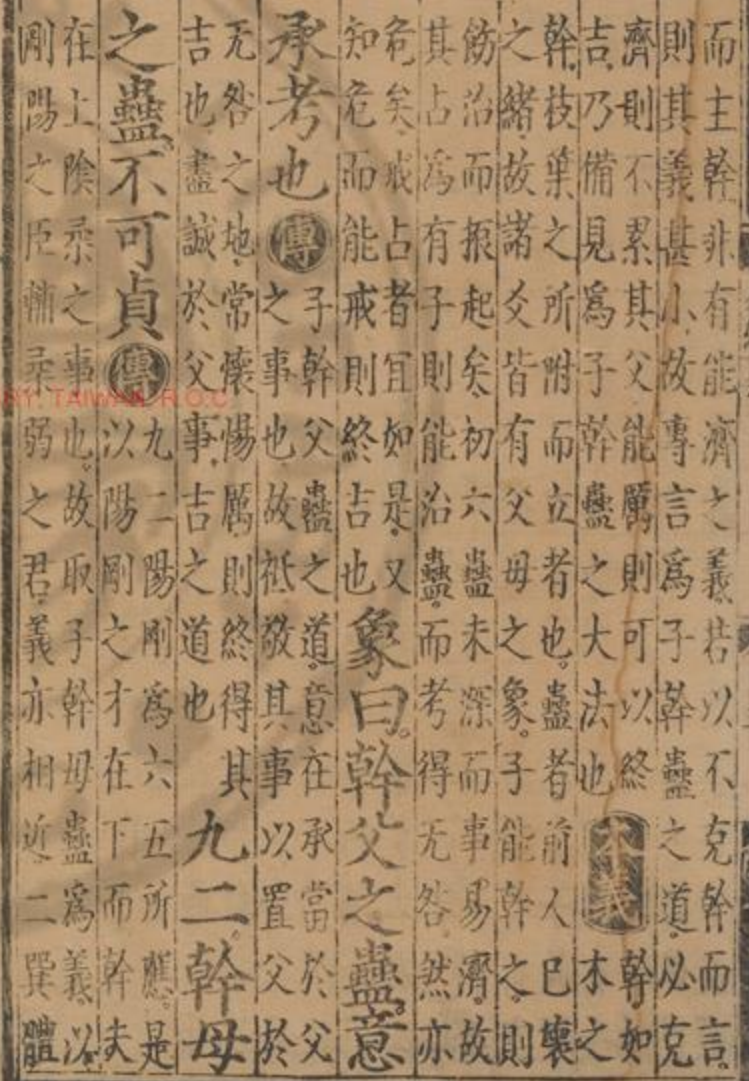 而主幹非有能濟之義若以不克幹而言。
則其義甚小故專言爲子幹蠱之道必克
濟則不累其父能厲則可以終
吉乃備見爲子幹蠱之大法也
本義
幹如
木之
幹枝葉之所附而立者也。蠱者前人已壞
之緒故諸爻皆有父母之象。子能幹之。則
飭治而振起矣初六蠱未深而事易濟故
其占爲有子則能治蠱而考得无咎然亦
危矣戒占者宜如是又
知危而能戒則終吉也
象曰。幹父之蠱。意
承考也
傳
子幹父蠱之道。意在承當於父
之事也故祗敬其事以置父於
无咎之地常懷惕厲則終得其
吉也盡誠於父事吉之道也
九二。幹母
之蠱不可貞
傳
九二陽剛爲六五所應是
以陽剛之才在下而幹夫
在上陰柔之事也。故取子幹母蠱爲義以
剛陽之臣輔柔弱之君義亦相近二巽體
RY, TAIWAN, R.O.C